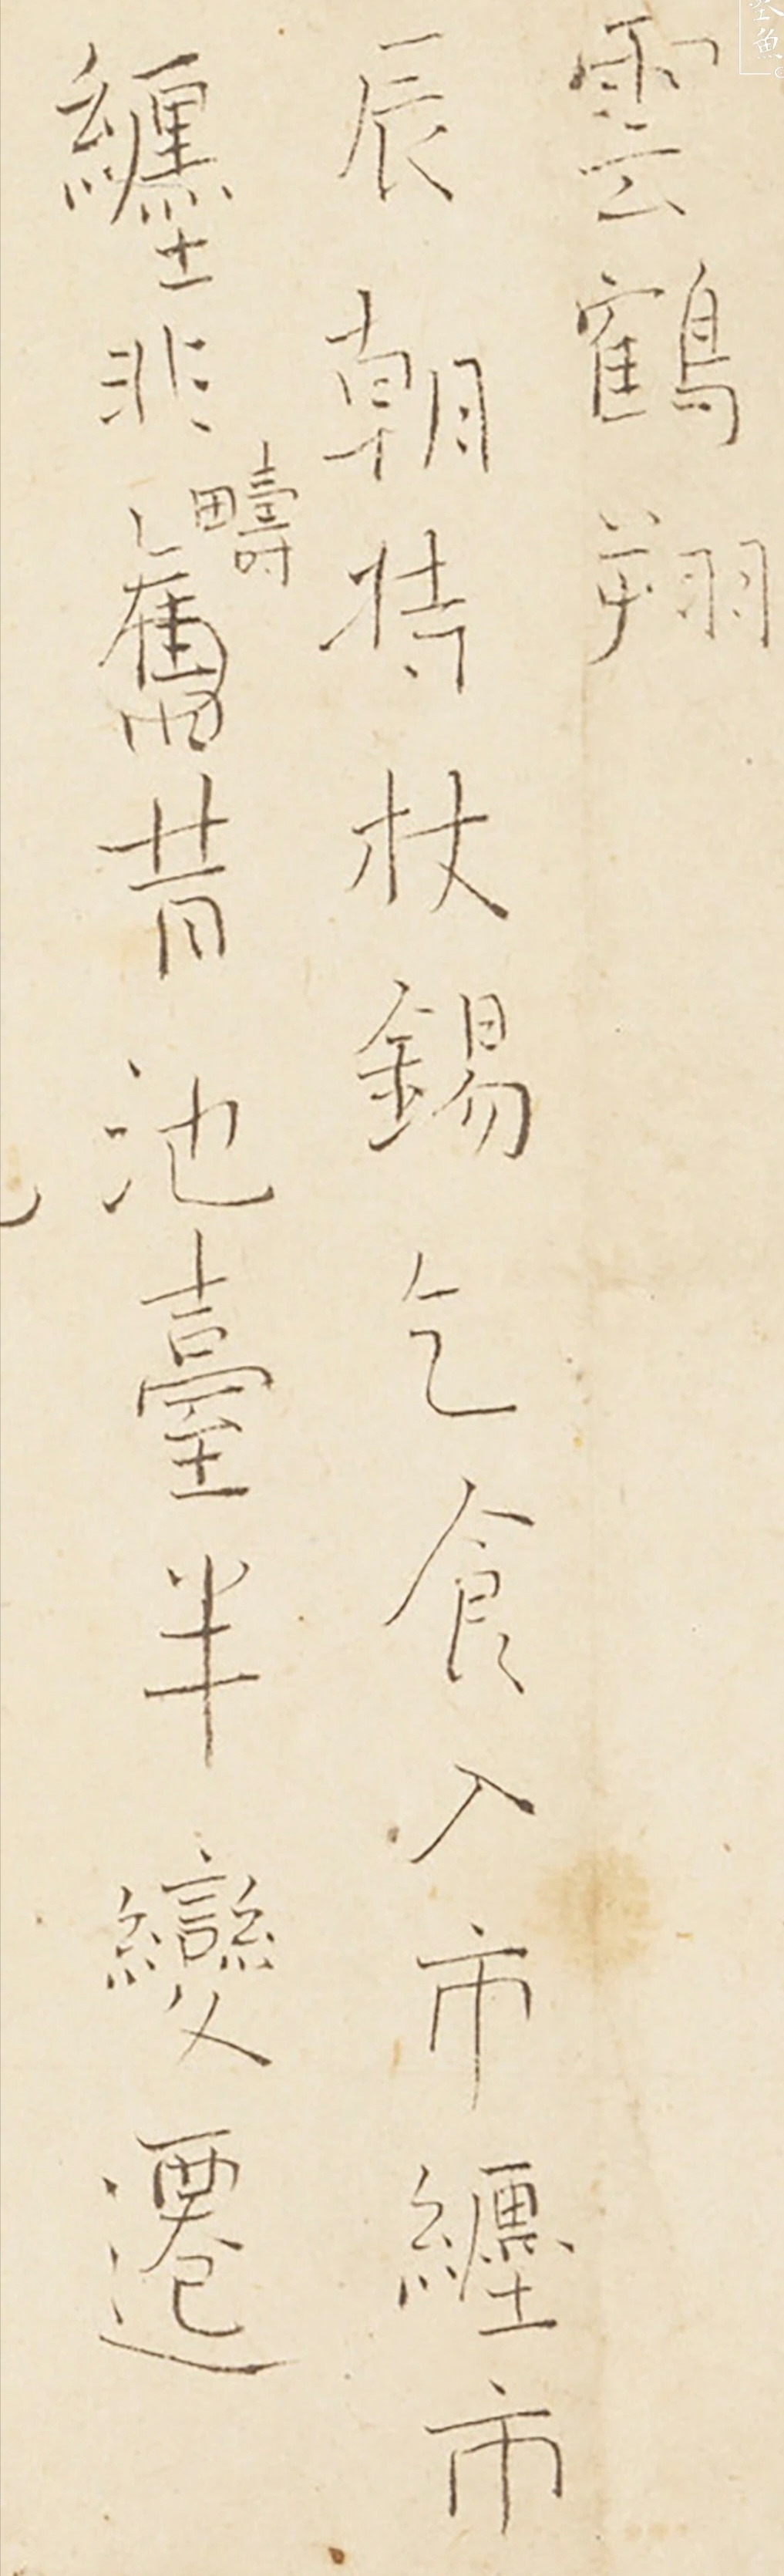 雲鶴翔
辰朝持杖錫乞食入市纏市
疇
纏非舊昔池臺半變遷